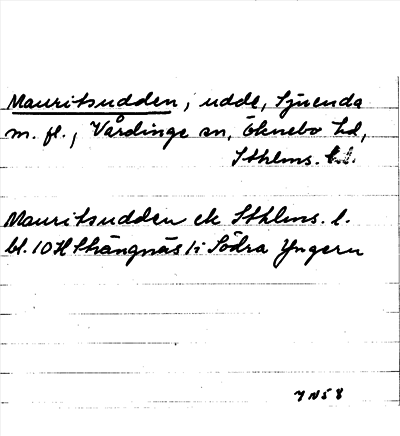 Mauritsudden, udde, Sjuenda
m. fl., Vårdinge sn, Öknebo hd,
Sthlms. l.
Mauritsudden ek Sthlms. l.
bl. 10H Strängnäs i Södra Yngern